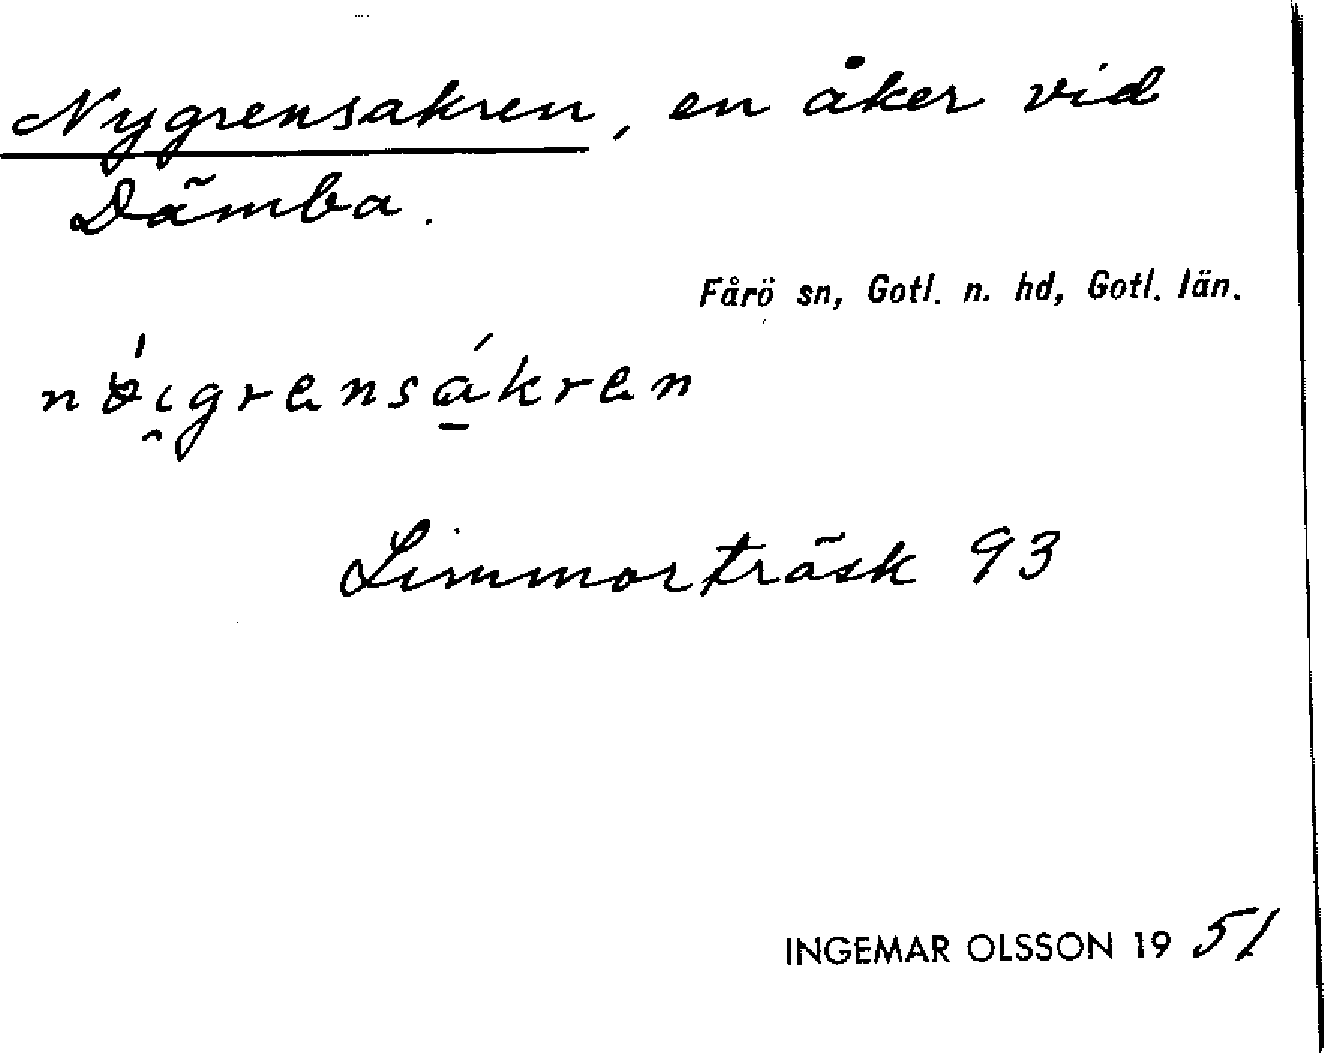 Nygrensakren, en åker vid
Dämba.
Fårö sn, Gotl. n. hd, Gotl. län.
Limmorträsk 93
INGEMAR OLSSON 19 51